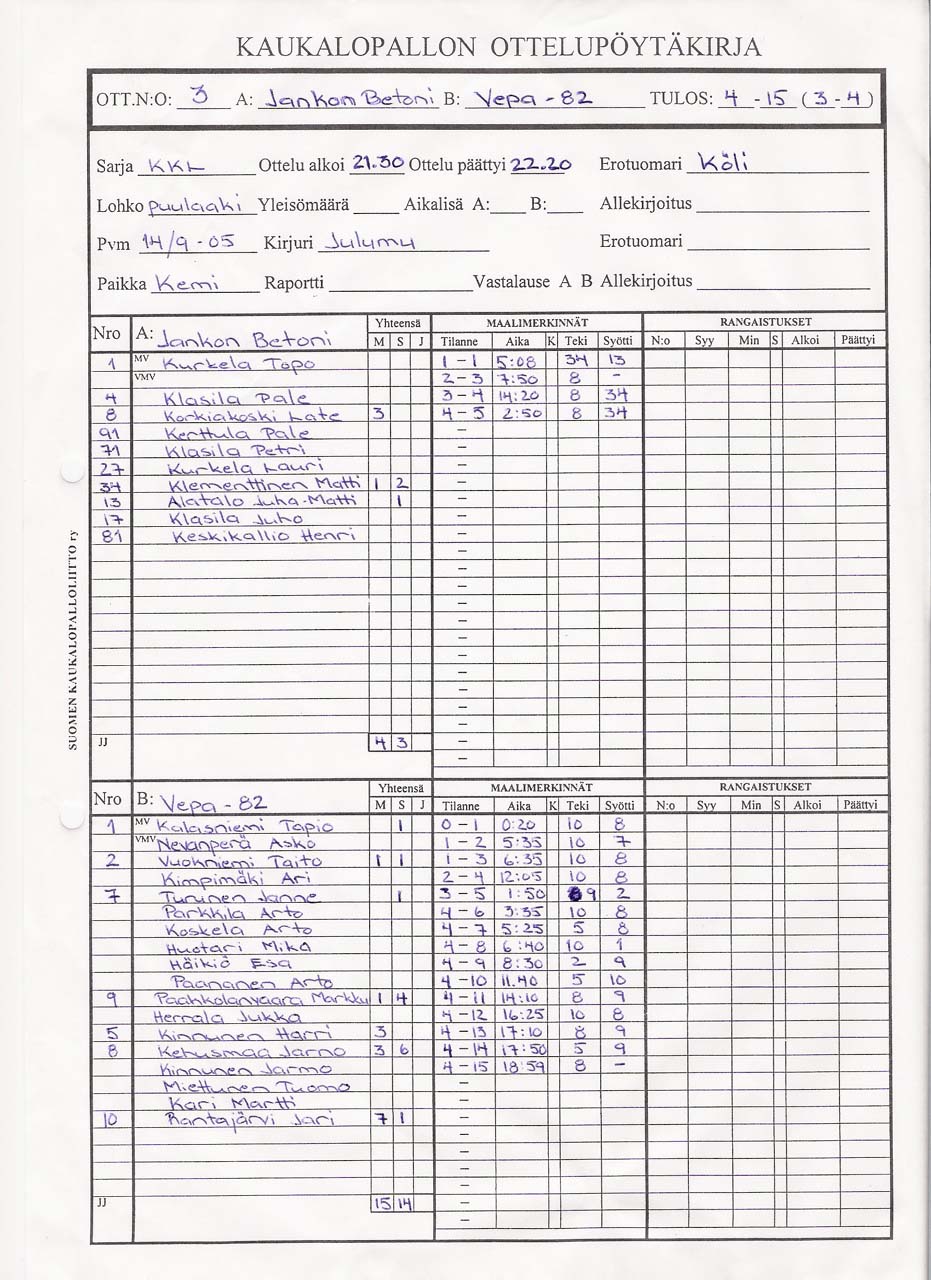 KAUKALOPALLON OTTELUPÖYTÄKIRJA
OTT.N:O: 3 A: Jankon Betoni B: Vepa - 82 TULOS: 4 - 15 ( 3 - 4 )
Sarja KKL Ottelu alkoi 21.30 Ottelu päättyi 22.20 Erotuomari Köli
Lohko puulaaki Yleisömäärä Aikalisä A: B: Allekirjoitus
Pvm 14/9 - 05 Kirjuri Julumu Erotuomari
Paikka Kemi Raportti Vastalause A B Allekirjoitus
Nro A: Jankon Betoni Yhteensä MAALIMERKINNÄT RANGAISTUKSET
M S J Tilanne Aika K Teki Syötti N:o Syy Min S Alkoi Päättyi
1 MV Kurkela Topo 1 - 1 5:08 34 13
VMV 2 - 3 7:50 8 -
4 Klasila Pale 3 - 4 14:20 8 34
8 Korkiakoski Late 3 4 - 5 2:50 8 34
91 Kerttula Pale -
71 Klasila Petri -
27 Kurkela Lauri -
34 Klementtinen Matti 1 2 -
13 Alatalo Juha-Matti 1 -
17 Klasila Juho -
81 Keskikallio Henri -
-
-
-
-
-
-
-
-
-
-
-
JJ 4 3 -
-
SUOMEN KAUKALOPALLOLIITTO ry
Nro B: Vepa - 82 Yhteensä MAALIMERKINNÄT RANGAISTUKSET
M S J Tilanne Aika K Teki Syötti N:o Syy Min S Alkoi Päättyi
1 MV Kalasniemi Tapio 1 0 - 1 0:20 10 8
VMV Nevanperä Asko 1 - 2 5:35 10 7
2 Vuokniemi Taito 1 1 1 - 3 6:35 10 8
Kimpimäki Ari 2 - 4 12:05 10 8
7 Turunen Janne 1 3 - 5 1:50 9 2
Parkkila Arto 4 - 6 3:35 10 8
Koskela Arto 4 - 7 5:25 5 8
Huotari Mika 4 - 8 6:40 10 1
Häikiö Esa 4 - 9 8:30 2 9
Paananen Arto 4 - 10 11.40 5 10
9 Paakkolanvaara Markku 1 4 4 - 11 14:10 8 9
Herrala Jukka 4 - 12 16:25 10 8
5 Kinnunen Harri 3 4 - 13 17:10 8 9
8 Kehusmaa Jarno 3 6 4 - 14 17:50 5 9
Kinnunen Jarmo 4 - 15 18:59 8 -
Miettunen Tuomo -
Kari Martti -
10 Rantajärvi Jari 7 1 -
-
-
-
-
JJ 15 14 -
-